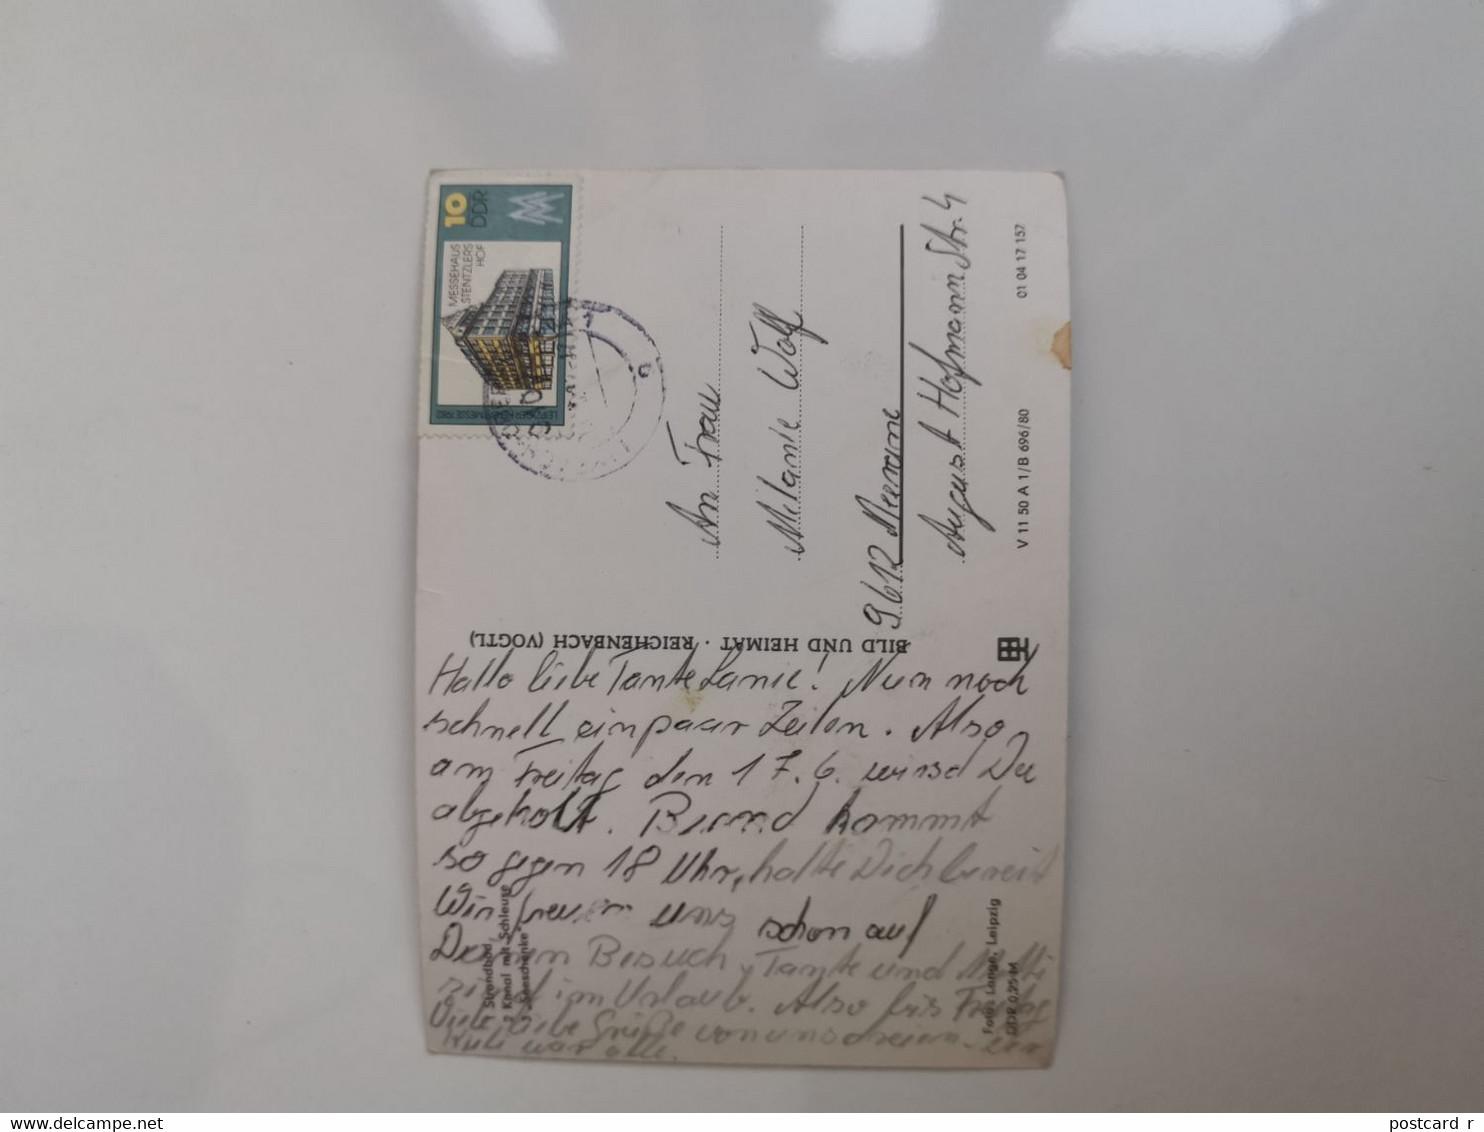 10
DDR
MM
MESSEHAUS
STENTZLERS
HOF
An Frau
Melanie Wolf
9612 Meerane
August Hofmann Str. 4
V 11 50 A 1/B 696/80
01 04 17 157
BILD UND HEIMAT · REICHENBACH (VOGTL)
Hallo liebe Tante Lanie! Nun noch
schnell ein paar Zeilen. Also
am Freitag den 17.6. wirst Du
abgeholt. Bernd kommt
so gegen 18 Uhr, halte Dich bereit
Wir freuen uns schon auf
Deinen Besuch, Tante und
sind im Urlaub. Also bis Freitag
Viele liebe Grüße von uns dreien
war alle.
1 Strandbad
2 Kanal mit Schleuse
3 "Seeschenke"
Foto: Lange, Leipzig
DDR 0,25 M
postcard r